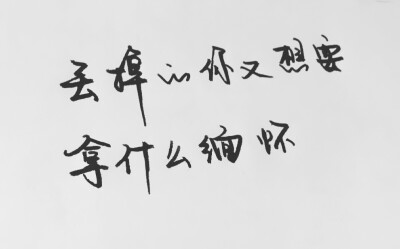 丢掉的你又想要
拿什么缅怀